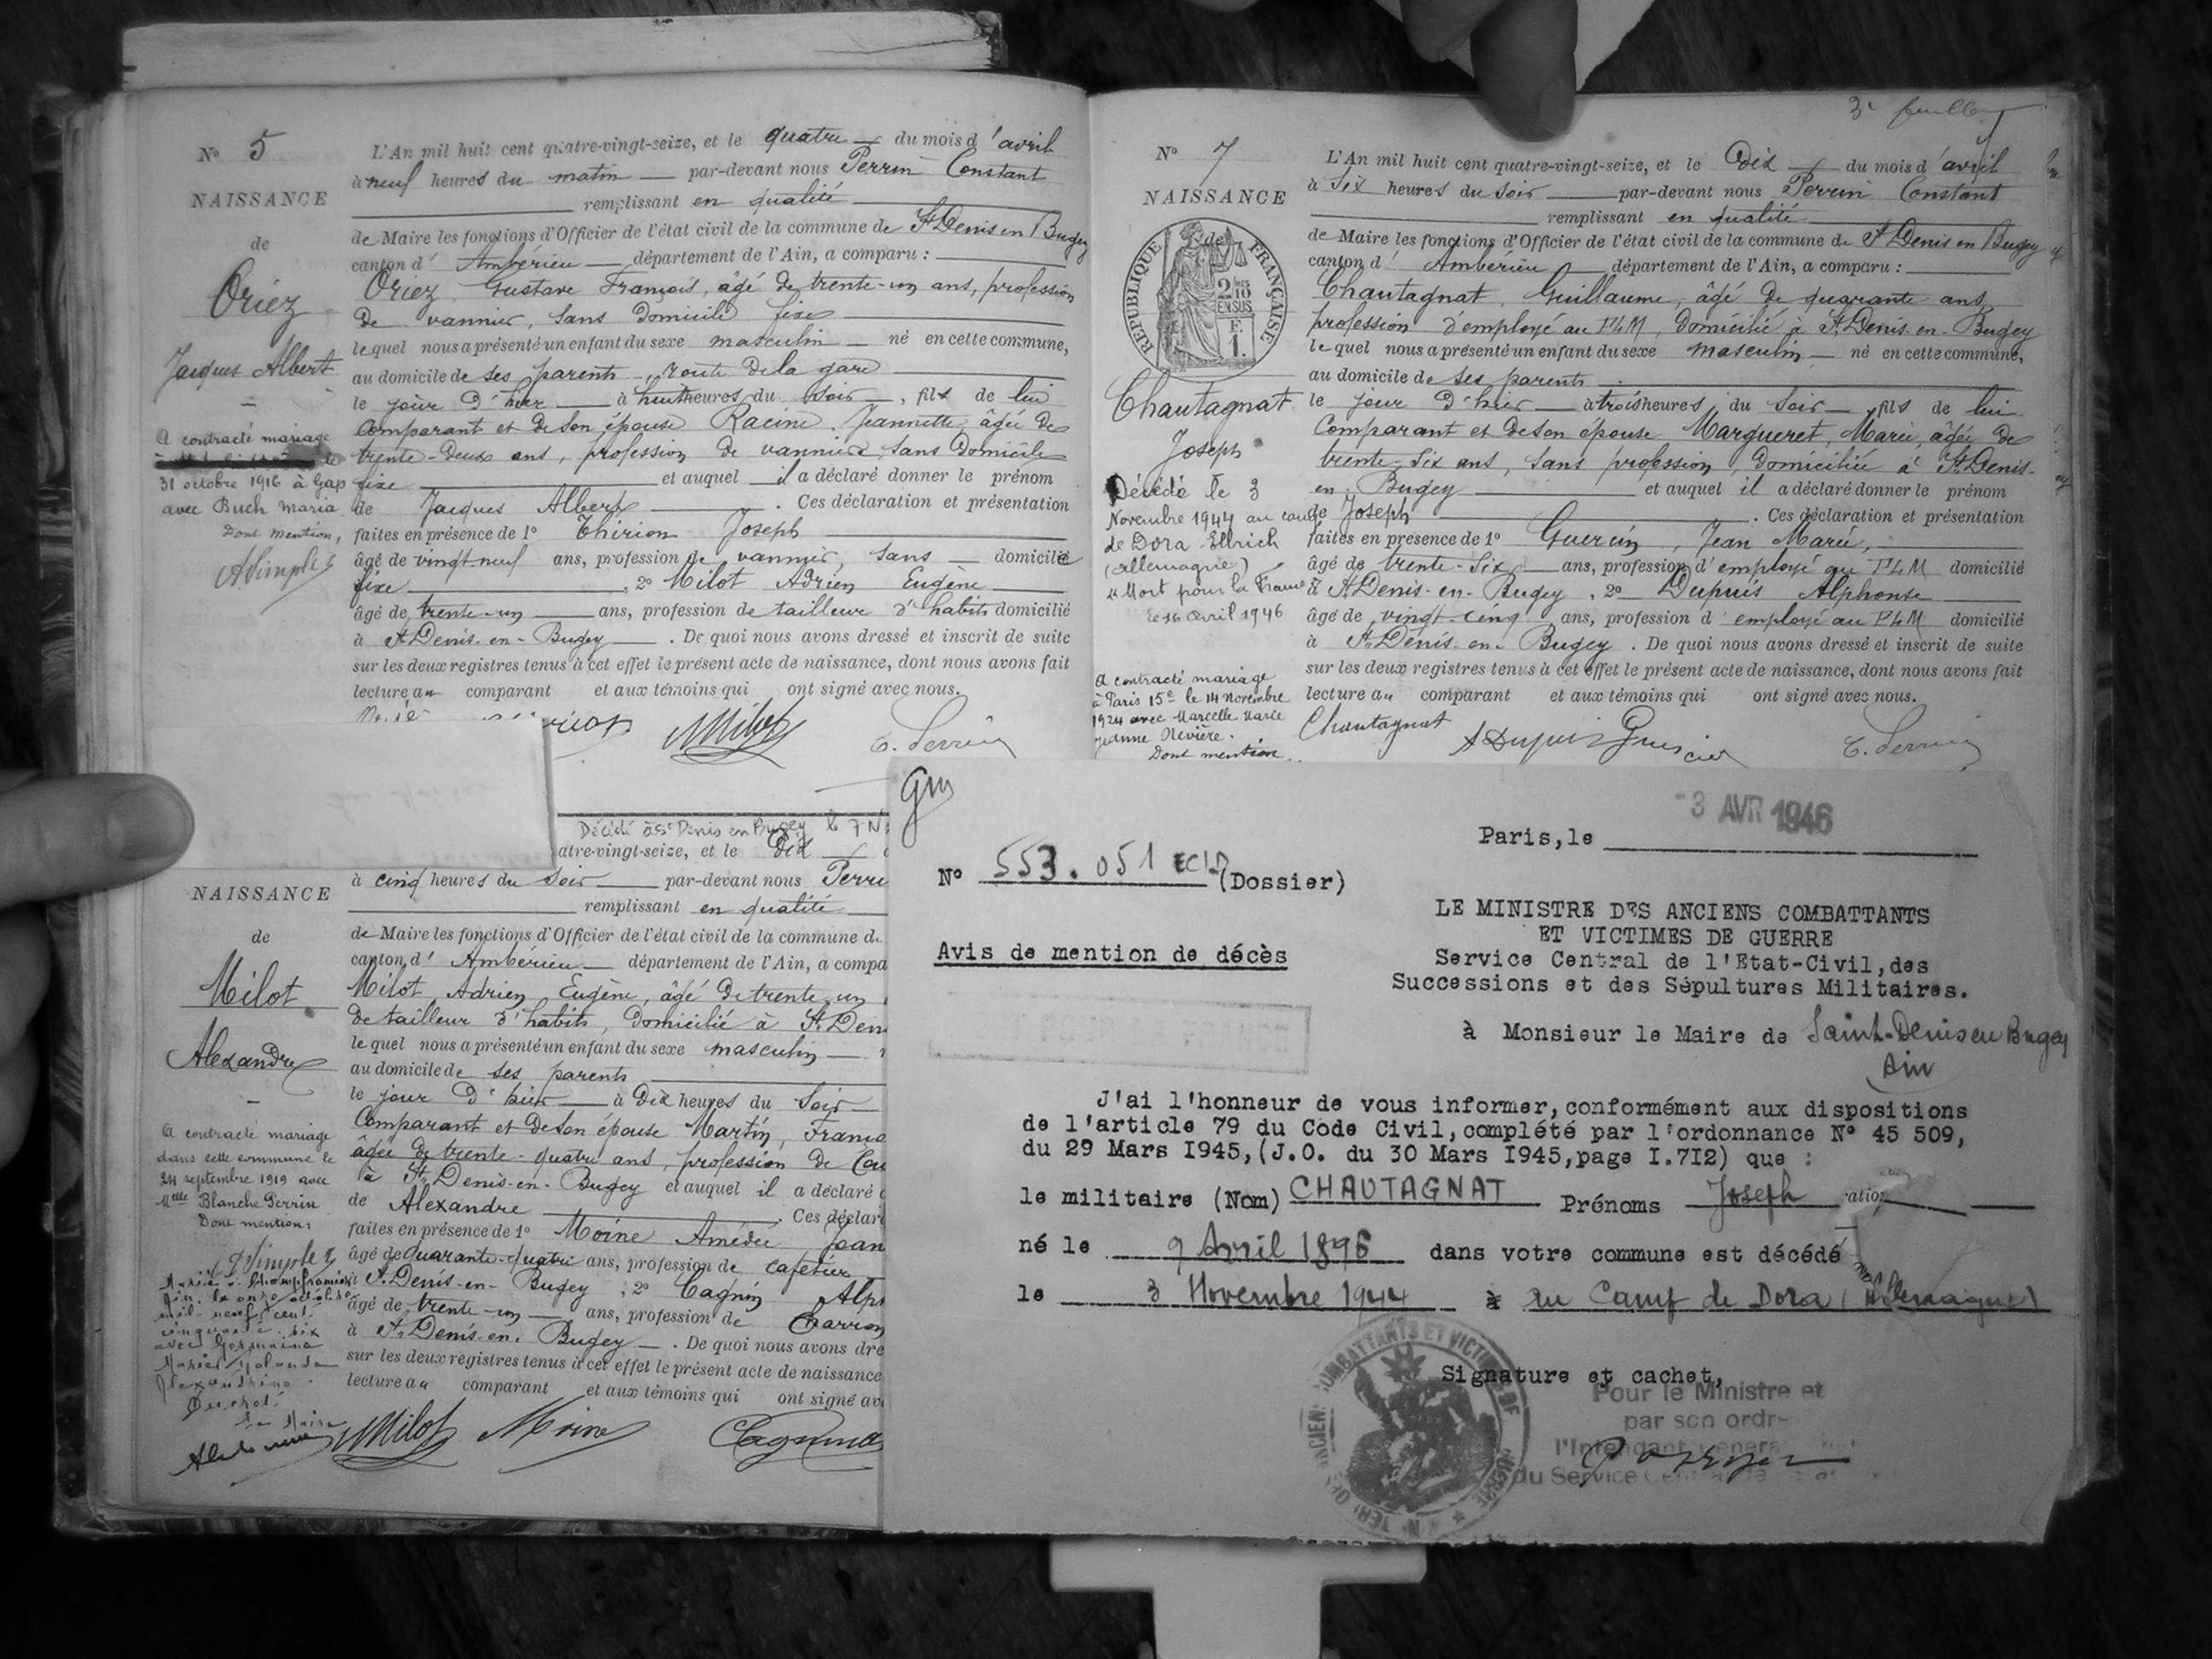 N° 5
NAISSANCE
de
Oriez
Jacques Albert
A contracté mariage
le
31 octobre 1916 à Gap
avec Buch Maria
Dont mention,
L'An mil huit cent quatre-vingt-seize, et le quatre du mois d'avril
à neuf heures du matin par-devant nous Perrin Constant
remplissant en qualité
de Maire les fonctions d'Officier de l'état civil de la commune de St Denis en Bugey
canton d' Ambérieu département de l'Ain, a comparu :
Oriez Gustave François, âgé de trente-un ans, profession
de vannier, sans domicile fixe
lequel nous a présenté un enfant du sexe masculin né en cette commune,
au domicile de ses parents, route de la gare
le jour d'hier à huit heures du soir, fils de lui
comparant et de son épouse Racine Jeannette âgée de
trente-deux ans, profession de vannière, sans domicile
fixe et auquel il a déclaré donner le prénom
de Jacques Albert. Ces déclaration et présentation
faites en présence de 1° Thirion Joseph
âgé de vingt-neuf ans, profession de vannier, sans domicilié
fixe, 2° Milot Adrien Eugène
âgé de trente-un ans, profession de tailleur d'habits domicilié
à St Denis-en-Bugey. De quoi nous avons dressé et inscrit de suite
sur les deux registres tenus à cet effet le présent acte de naissance, dont nous avons fait
lecture au comparant et aux témoins qui ont signé avec nous.
Milot C. Perrin
Décédé à St Denis en Bugey le 7 N
atre-vingt-seize, et le Dix
NAISSANCE
de
Milot
Alexandre
A contracté mariage
dans cette commune le
24 septembre 1919 avec
Melle Blanche Perrin
Dont mention:
à cinq heures du soir par-devant nous Perri
remplissant en qualité
de Maire les fonctions d'Officier de l'état civil de la commune d
canton d' Ambérieu département de l'Ain, a compa
Milot Adrien Eugène, âgé de trente-un
de tailleur d'habits, domicilié à St Den
lequel nous a présenté un enfant du sexe masculin
au domicile de ses parents
le jour d'hier à dix heures du soir
comparant et de son épouse Martin, Franço
âgée de trente-quatre ans, profession de Cou
à St Denis-en-Bugey et auquel il a déclaré
de Alexandre. Ces déclar
faites en présence de 1° Moine Amédée Jean
âgé de quarante-quatre ans, profession de cafetier
St Denis-en-Bugey, 2° Cagnin Alp
âgé de trente-un ans, profession de Charron
à St Denis-en-Bugey. De quoi nous avons dre
sur les deux registres tenus à cet effet le présent acte de naissance
lecture au comparant et aux témoins qui ont signé av
Milot Moine
3e feuillet
N° 7
NAISSANCE
de
RÉPUBLIQUE FRANÇAISE
2/10 EN SUS
F. 1.
Chautagnat
Joseph
Décédé le 3
Novembre 1944 au camp
de Dora Ellrich
(Allemagne)
"Mort pour la France"
Le 16 Avril 1946
A contracté mariage
à Paris 15e le 14 Novembre
1924 avec Marcelle Marie
Jeanne
Dont mention
L'An mil huit cent quatre-vingt-seize, et le Dix du mois d'avril
à Six heures du soir par-devant nous Perrin Constant
remplissant en qualité
de Maire les fonctions d'Officier de l'état civil de la commune de St Denis en Bugey
canton d' Ambérieu département de l'Ain, a comparu :
Chautagnat, Guillaume, âgé de quarante ans,
profession d'employé au PLM, domicilié à St Denis-en-Bugey
lequel nous a présenté un enfant du sexe masculin né en cette commune,
au domicile de ses parents
le jour d'hier à trois heures du soir fils de lui
comparant et de son épouse Margueret, Marie, âgée de
trente-six ans, sans profession, domiciliée à St Denis-
en-Bugey et auquel il a déclaré donner le prénom
de Joseph. Ces déclaration et présentation
faites en présence de 1° Guercin, Jean Marie,
âgé de trente-six ans, profession d'employé au PLM domicilié
à St Denis-en-Bugey, 2° Dupuis Alphonse
âgé de vingt-cinq ans, profession d'employé au PLM domicilié
à St Denis-en-Bugey. De quoi nous avons dressé et inscrit de suite
sur les deux registres tenus à cet effet le présent acte de naissance, dont nous avons fait
lecture au comparant et aux témoins qui ont signé avec nous.
Chautagnat A Dupuis Guercin C. Perrin
-3 AVR 1946
Paris, le
N° 553.051 (Dossier)
Avis de mention de décès
LE MINISTRE DES ANCIENS COMBATTANTS
ET VICTIMES DE GUERRE
Service Central de l'Etat-Civil, des
Successions et des Sépultures Militaires.
à Monsieur le Maire de Saint-Denis en Bugey
Ain
J'ai l'honneur de vous informer, conformément aux dispositions
de l'article 79 du Code Civil, complété par l'ordonnance N° 45 509,
du 29 Mars I945, (J.O. du 30 Mars I945, page I.7I2) que :
le militaire (Nom) CHAUTAGNAT Prénoms Joseph
né le 9 Avril 1896 dans votre commune est décédé
le 3 Novembre 1944 à au Camp de Dora (Allemagne)
Signature et cachet,
Pour le Ministre et
par son ordre
l'Intendant Général
du Service Central